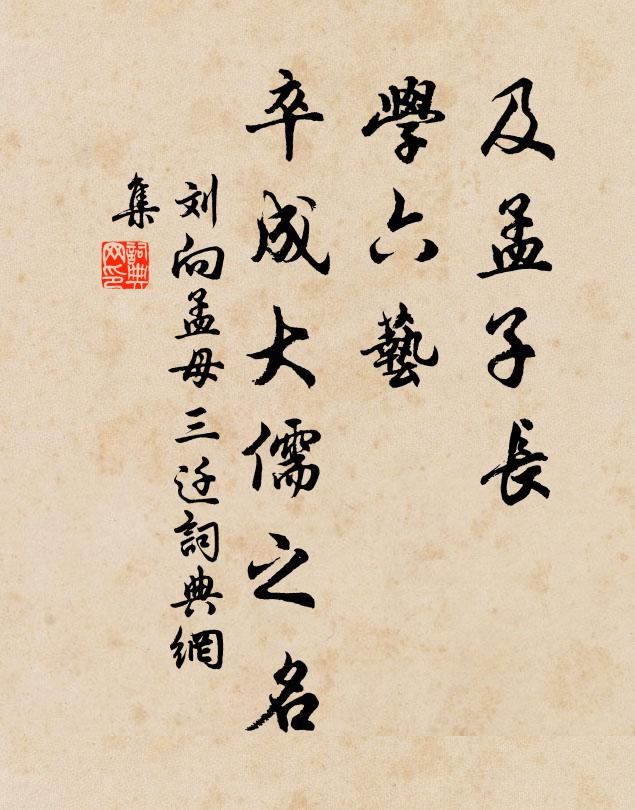 及孟子長
學六藝
卒成大儒之名
刘向孟母三迁詞典網
集
詞典
网印